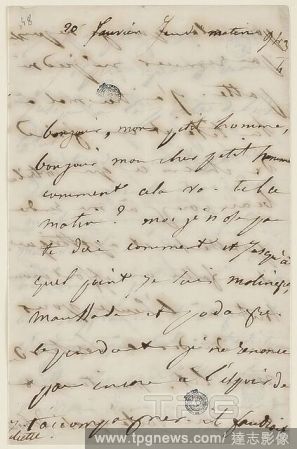 20 février jeudi matin 9h ¾
bonjour, mon petit homme,
bonjour mon cher petit homme
comment cela va-t-il ce
matin? moi je n'ose pas
te dire comment et jusqu'à
quel point je suis
maussade et
cependant je ne renonce
pas encore à l'espoir de
t'accompagner et faudrait
TPG
www.tpgnews.com / 達志影像